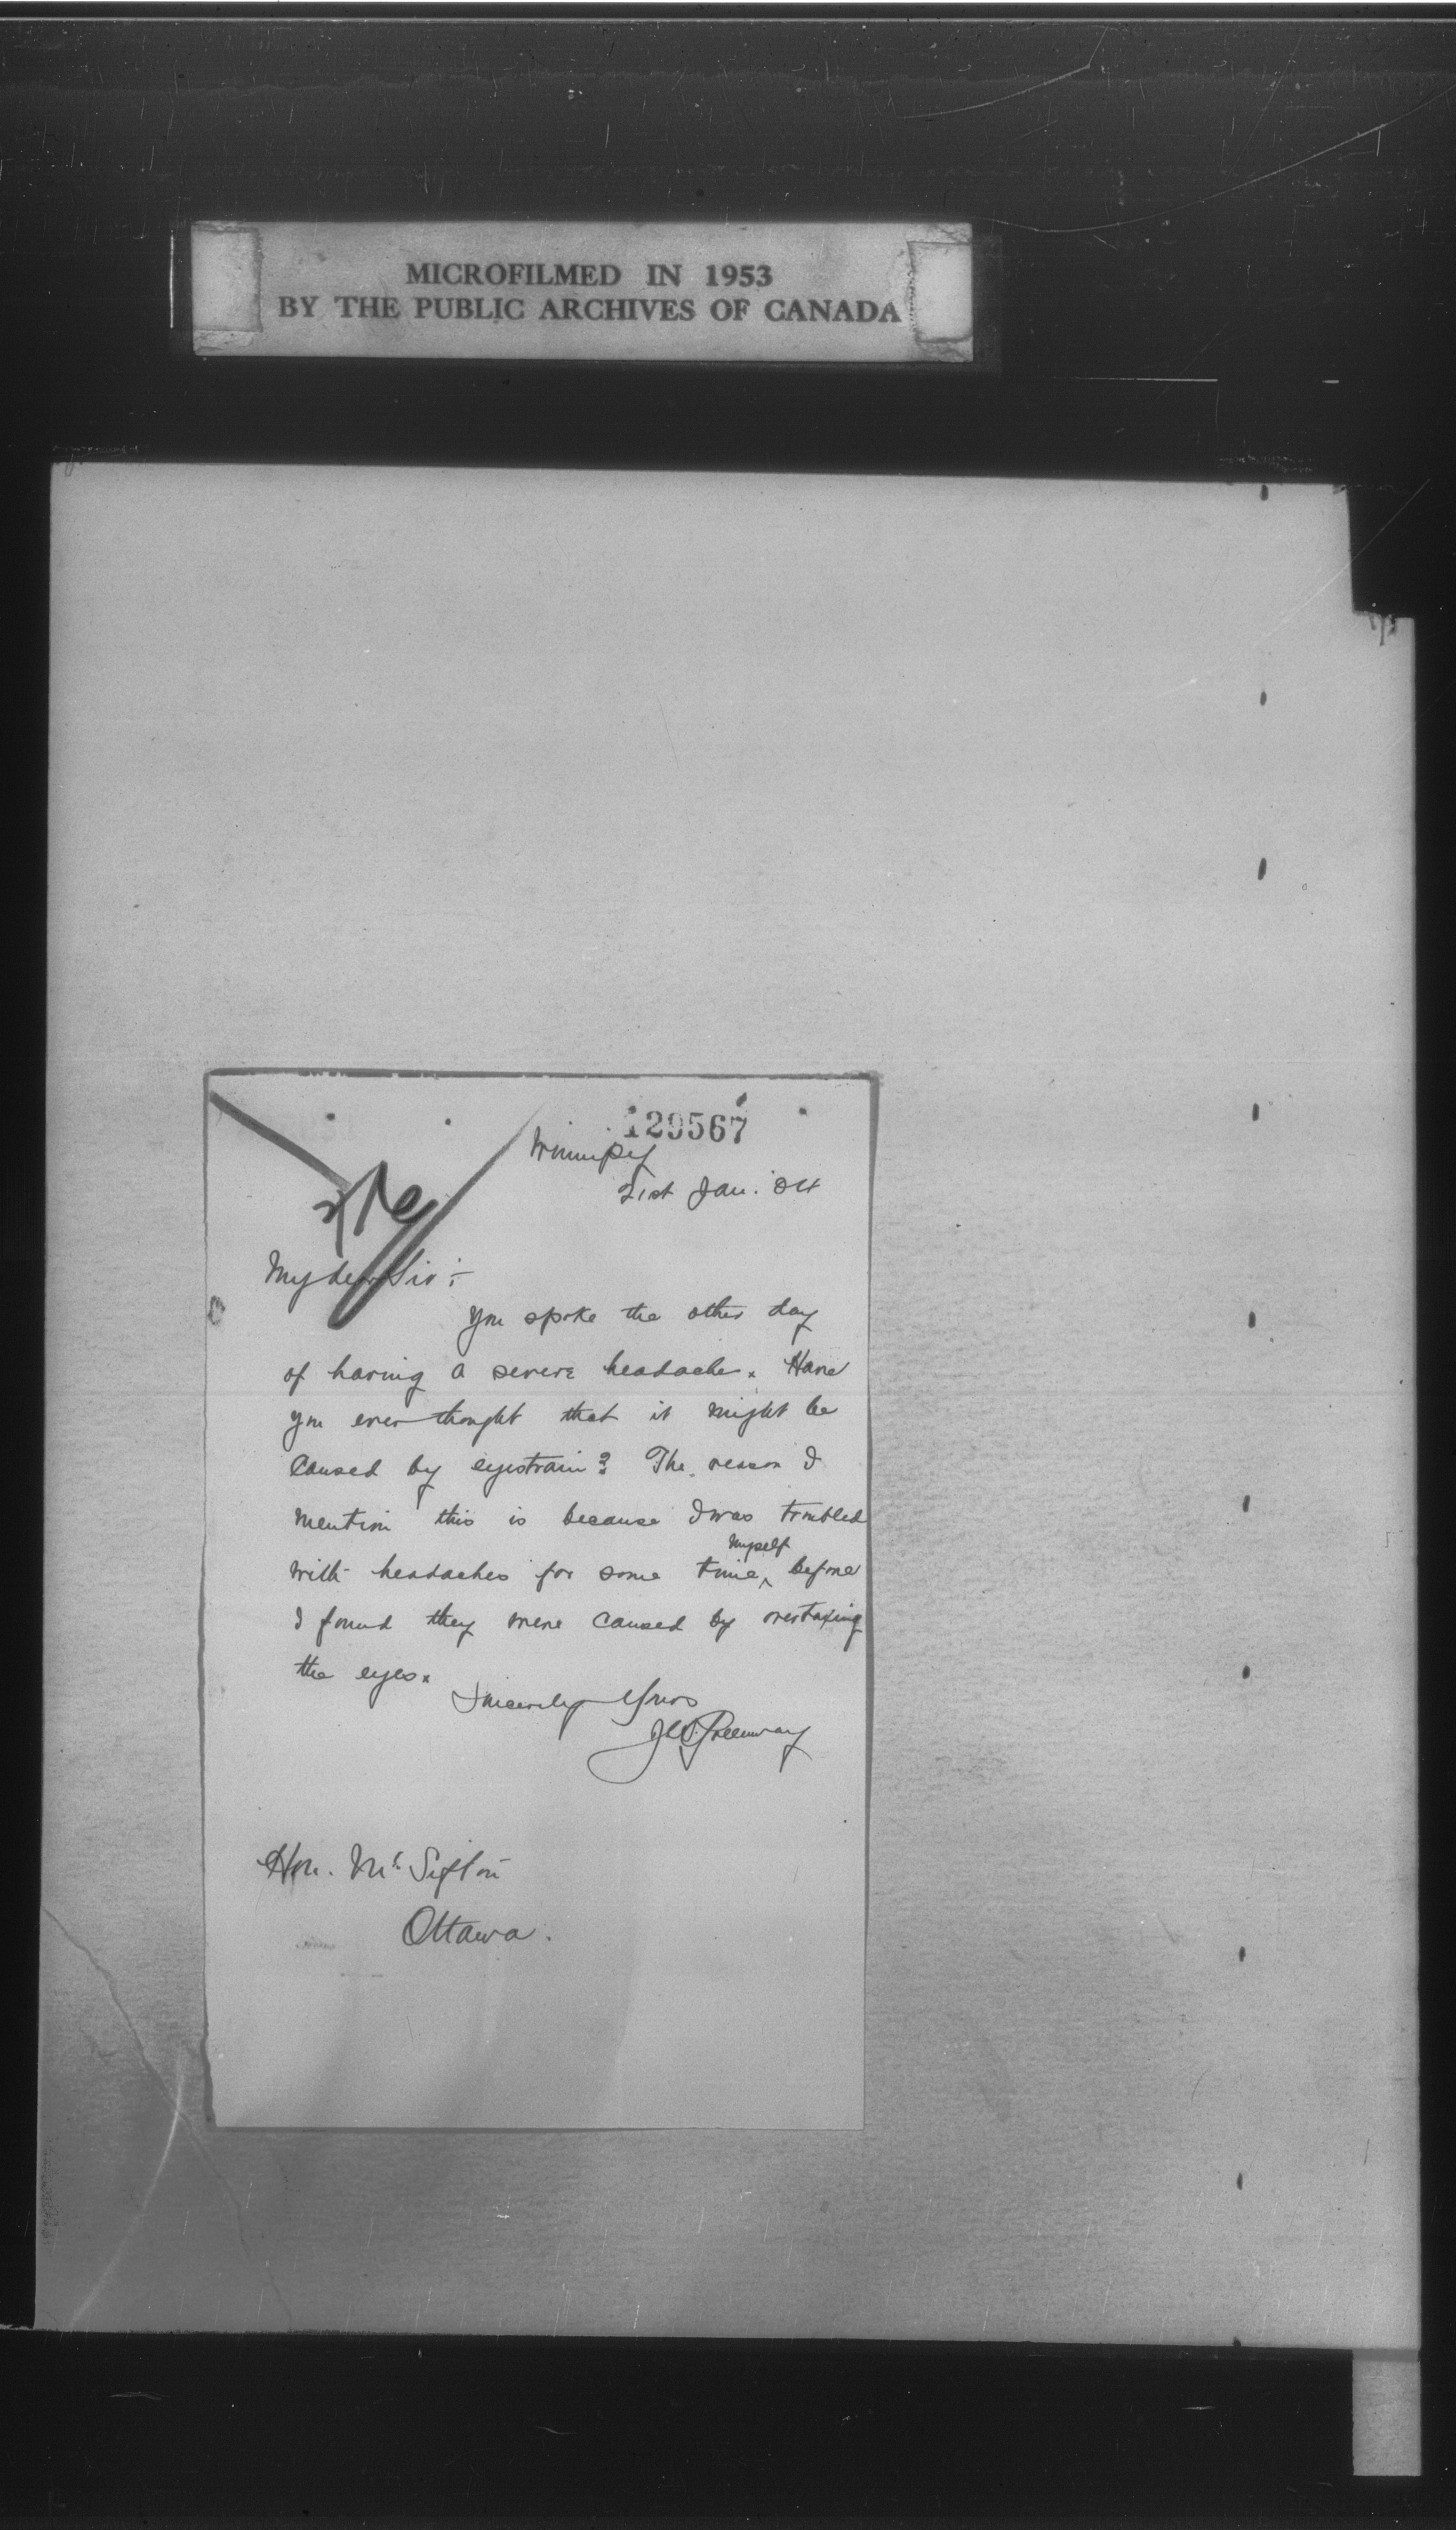 MICROFILMED IN 1953
BY THE PUBLIC ARCHIVES OF CANADA
129567
Winnipeg
21st Jan. '04
My dear Sir :-
You spoke the other day
of having a severe headache. Have
you ever thought that it might be
caused by eyestrain? The reason I
mention this is because I was troubled
with headaches for some time ^myself before
I found they were caused by overtaxing
the eyes.
Sincerely Yours
Greenway
Hon. Mr. Sifton
Ottawa.